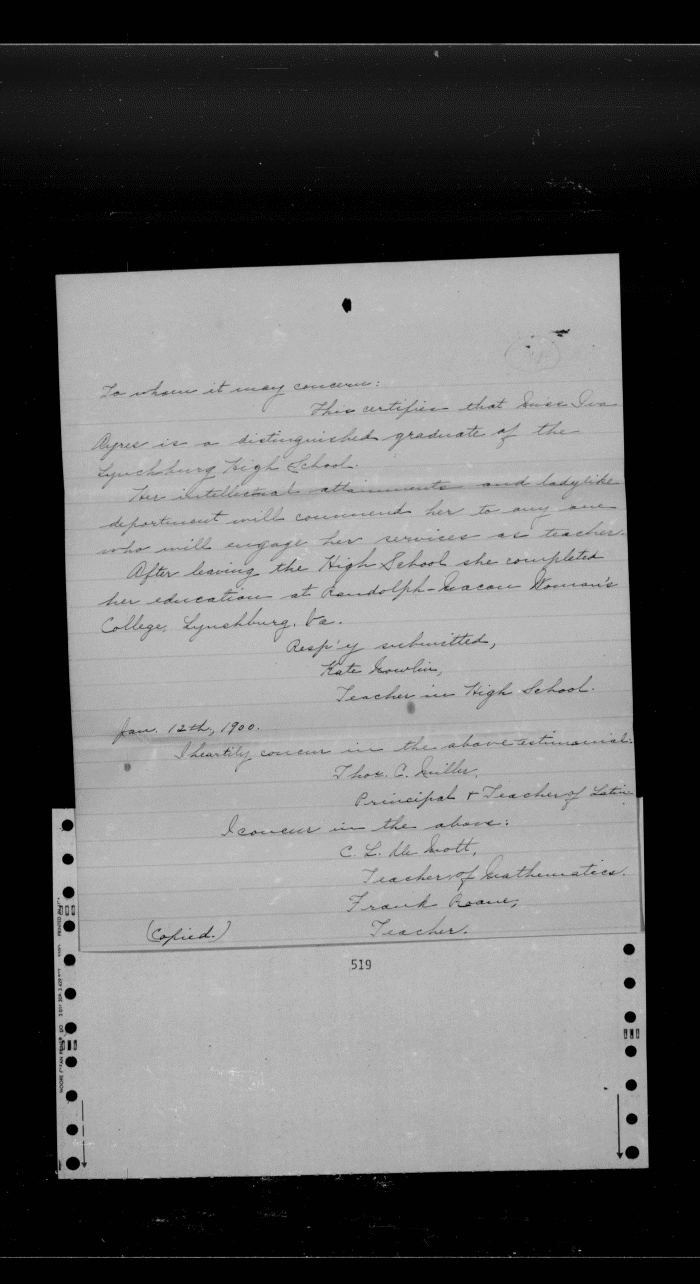 To whom it may concern:
This certifies that Miss Iva
Ayres is a distinguished graduate of the
Lynchburg High School.
Her intellectual attainments and ladylike
deportment will commend her to any one
who will engage her services as teacher.
After leaving the High School she completed
her education at Randolph-Macon Woman's
College, Lynchburg, Va.
Resp'y submitted,
Kate
Teacher in High School.
Jan. 12th, 1900.
I heartily concur in the above testimonial:
Thos. C. Miller,
Principal & Teacher of Latin
I concur in the above:
C. L. De Mott,
Teacher of Mathematics.
Frank Roane,
(Copied.) Teacher.
519